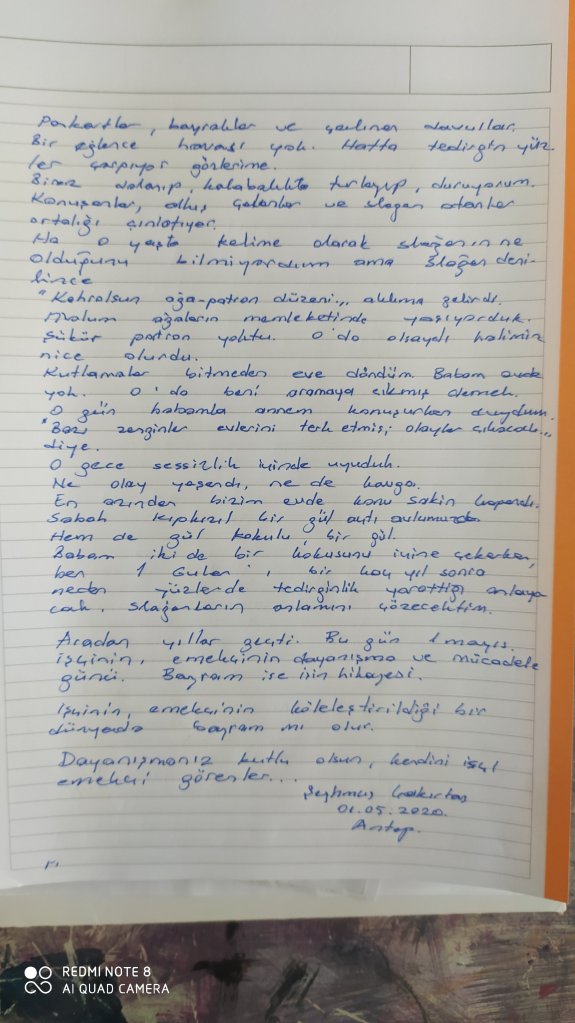 Pankartlar, bayraklar ve çalınan davullar.
Bir eğlence havası yok. Hatta tedirgin yüz-
ler çarpıyor gözlerime.
Biraz dolanıp, kalabalıkta turlayıp, duruyorum.
Konuşanlar, alkış çalanlar ve slogan atanlar
ortalığı çınlatıyor.
Ha o yaşta kelime olarak sloganın ne
olduğunu bilmiyordum ama slogan deni-
lince
"Kahrolsun ağa-patron düzeni,, aklıma gelirdi.
Malum ağaların memleketinde yaşıyorduk.
Şükür patron yoktu. O'da olsaydı halimiz
nice olurdu.
Kutlamalar bitmeden eve döndüm. Babam evde
yok. O'da beni aramaya çıkmış demek.
O gün babamla annem konuşurken duydum.
"Bazı zenginler evlerini terk etmiş; olaylar çıkacak,,
diye.
O gece sessizlik içinde uyuduk.
Ne olay yaşandı, ne de kavga.
En azından bizim evde konu sakin kapandı.
Sabah kıpkızıl bir gül açtı avlumuzda
Hem de gül kokulu, bir gül.
Babam iki de bir kokusunu içine çekerken,
ben 1 bir kaç yıl sonra
neden yüzlerde tedirginlik yarattığı anlaya
cak, sloganların anlamını çözecektim.
Aradan yıllar geçti. Bu gün 1 mayıs.
işçinin, emekçinin dayanışma ve mücadele
günü. Bayram ise işin hikayesi.
İşçinin, emekçinin köleleştirildiği bir
dünyada bayram mı olur.
Dayanışmanız kutlu olsun, kendini işçi
emekçi görenler...
Şeyhmus
01.05.2020
Antep.
REDMI NOTE 8
AI QUAD CAMERA